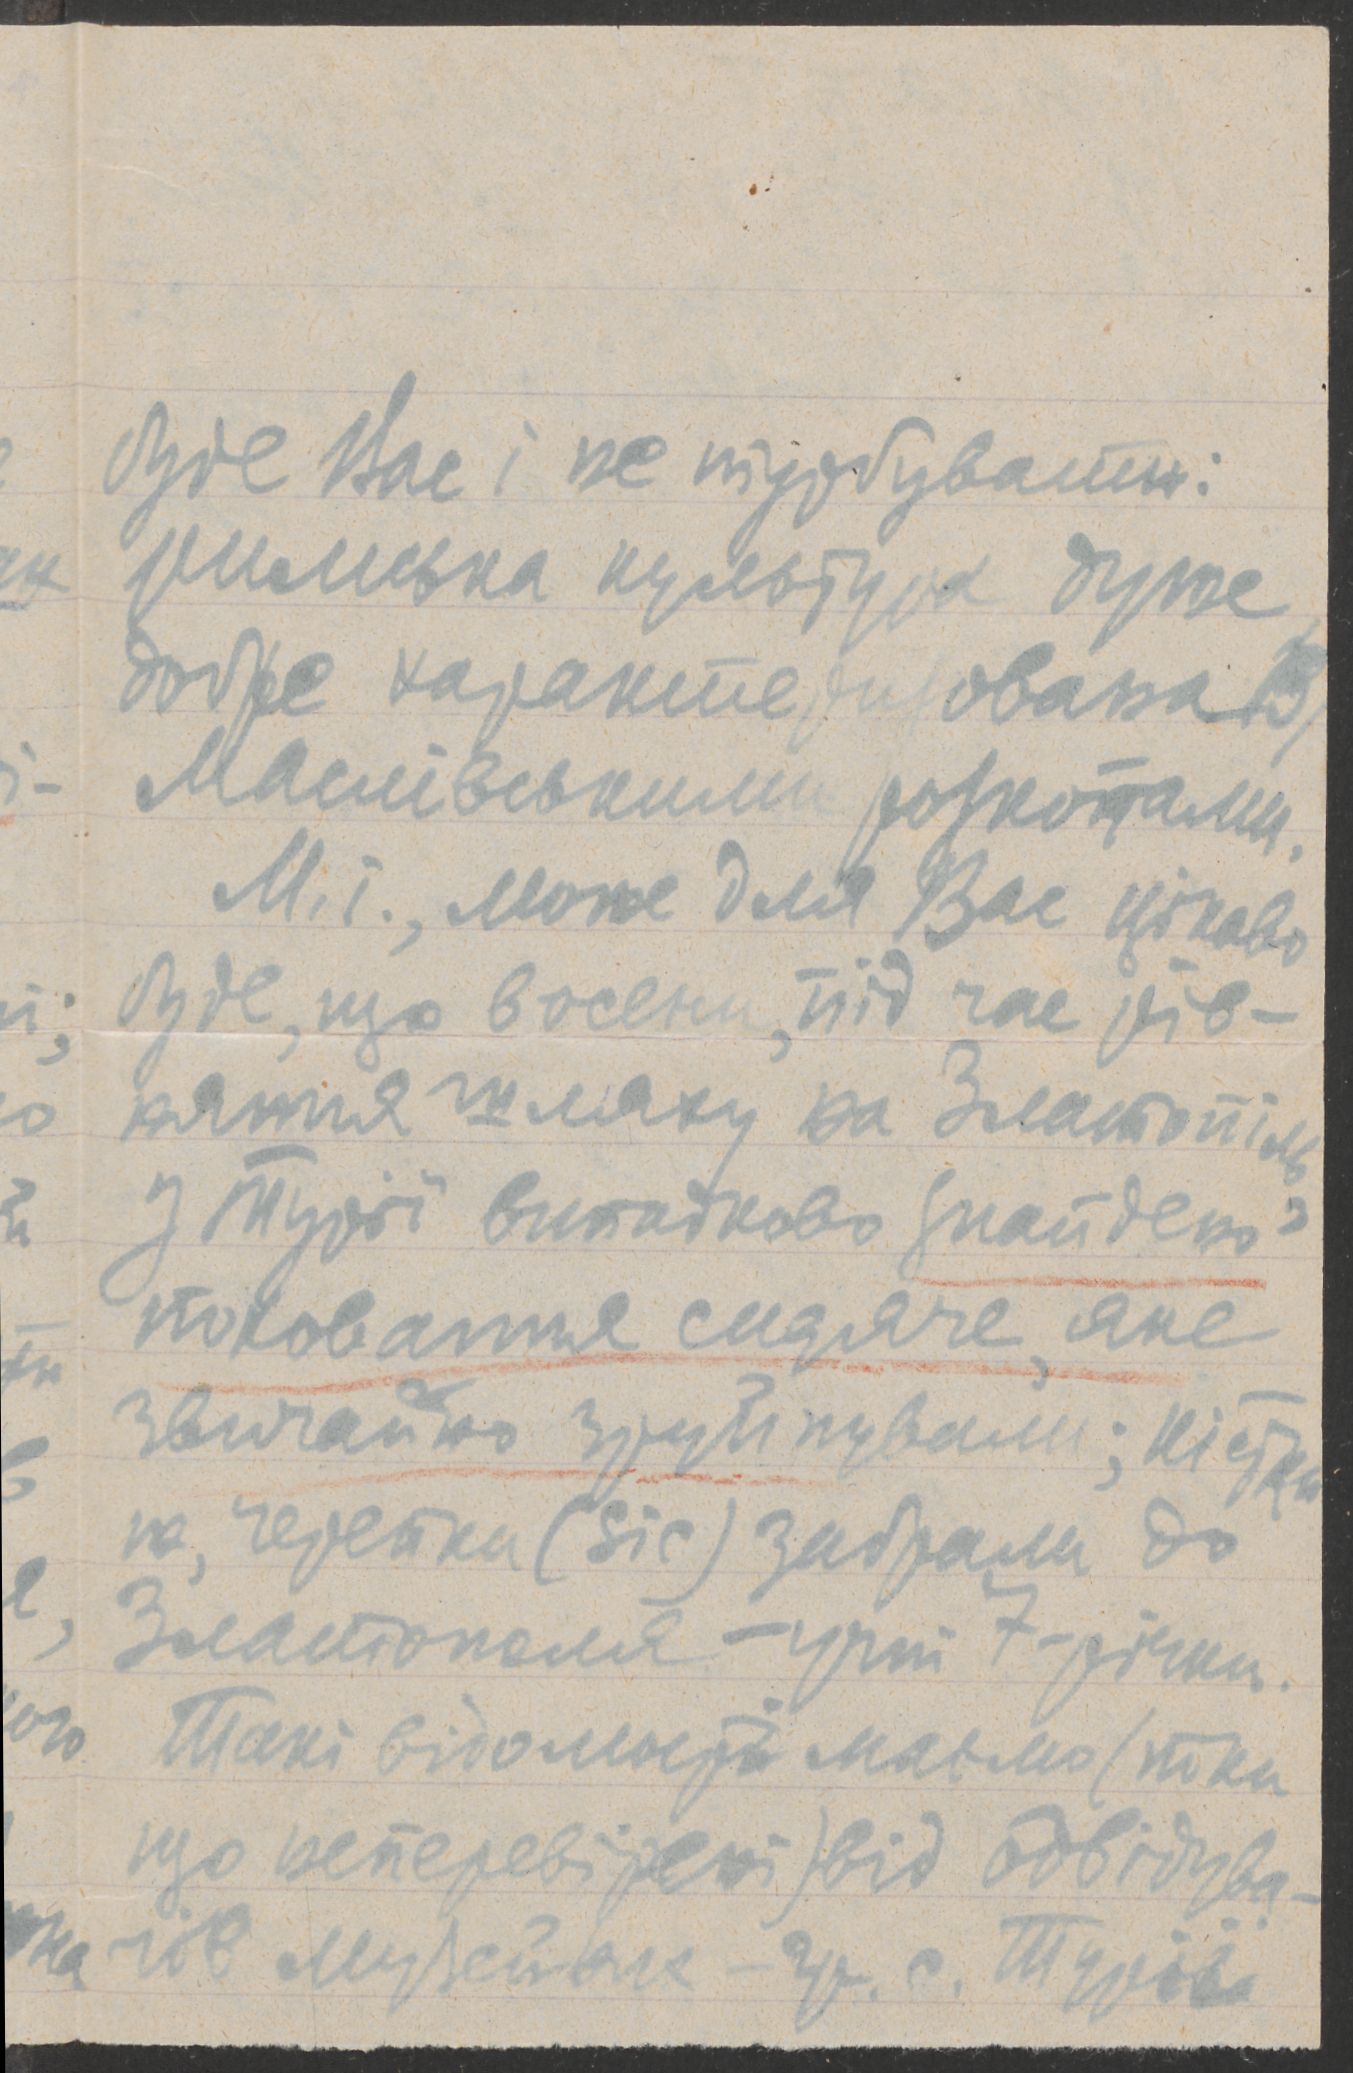 буде Вас і не турбувати:
римська культура дуже
добре характеризована
Маслівськими розкопами.
М. і., може для Вас цікаво
буде, що восени, під час рів-
няння шляху на Златопіль,
у Турії випадково знайдено
поховання сидяче, яке
звичайно зруйнували; кістки
ж, черепки (sic) забрали до
Златополя – учні 7-річки.
Такі відомості маємо (поки
що неперевірені) від одвідува-
чів музейних – гр. с. Турії